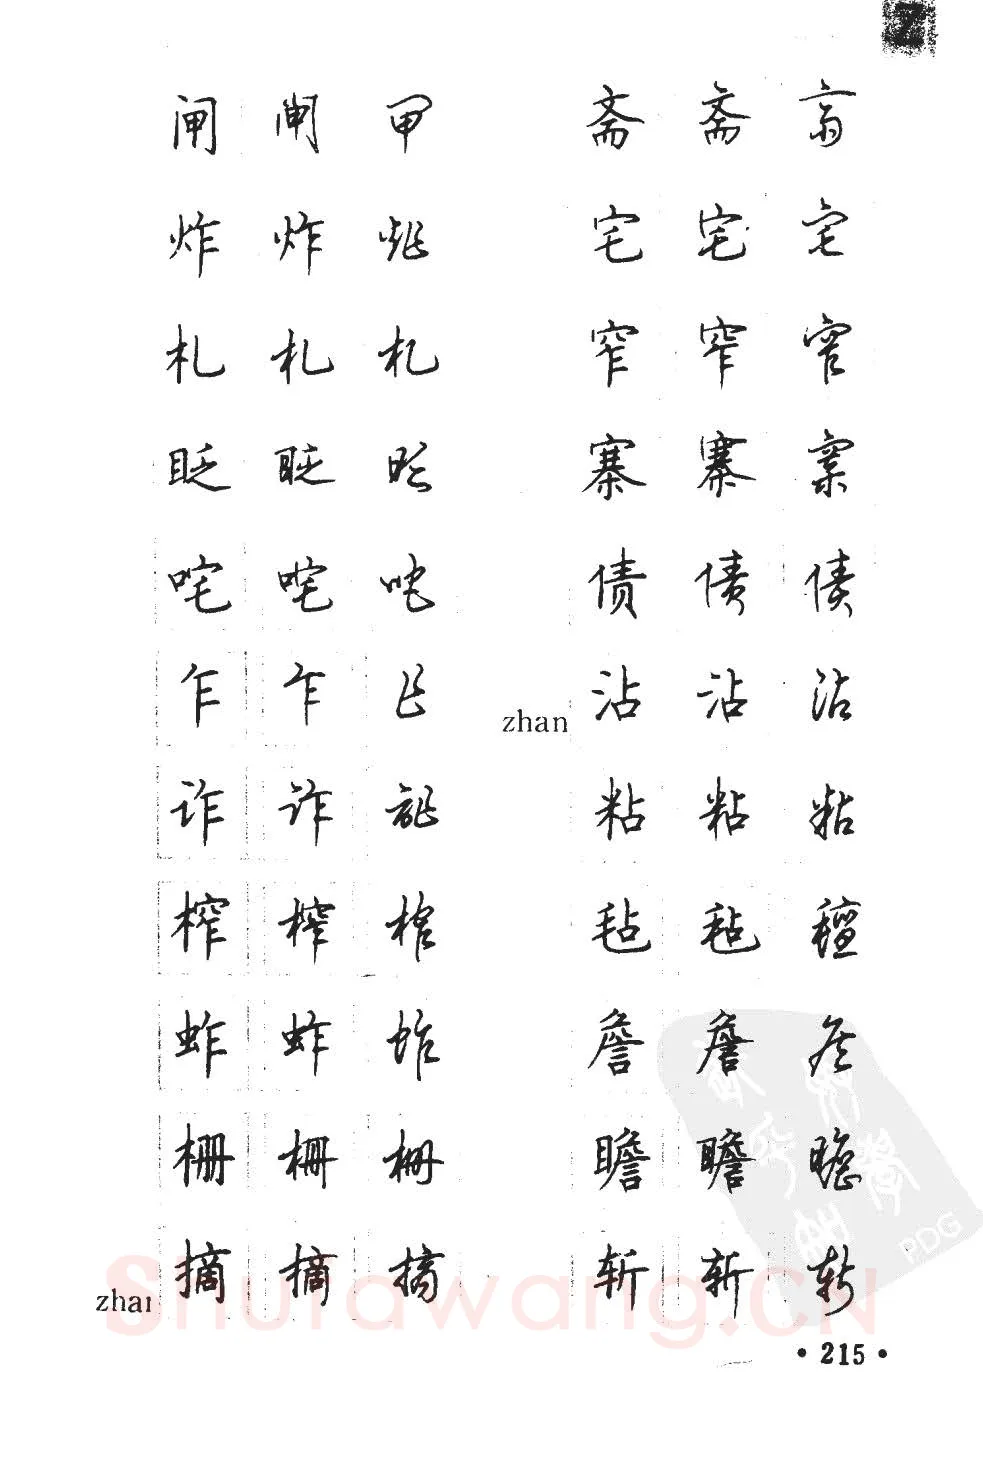 Z
闸 闸 闸
炸 炸 炸
札 札 札
眨 眨 眨
咤 咤 咤
乍 乍 乍
诈 诈 诈
榨 榨 榨
蚱 蚱 蚱
栅 栅 栅
zhai 摘 摘 摘
斋 斋 斋
宅 宅 宅
窄 窄 窄
寨 寨 寨
债 债 债
zhan 沾 沾 沾
粘 粘 粘
毡 毡 毡
詹 詹 詹
瞻 瞻 瞻
斩 斩 斩
Shufawang.CN
PDG
• 215 •